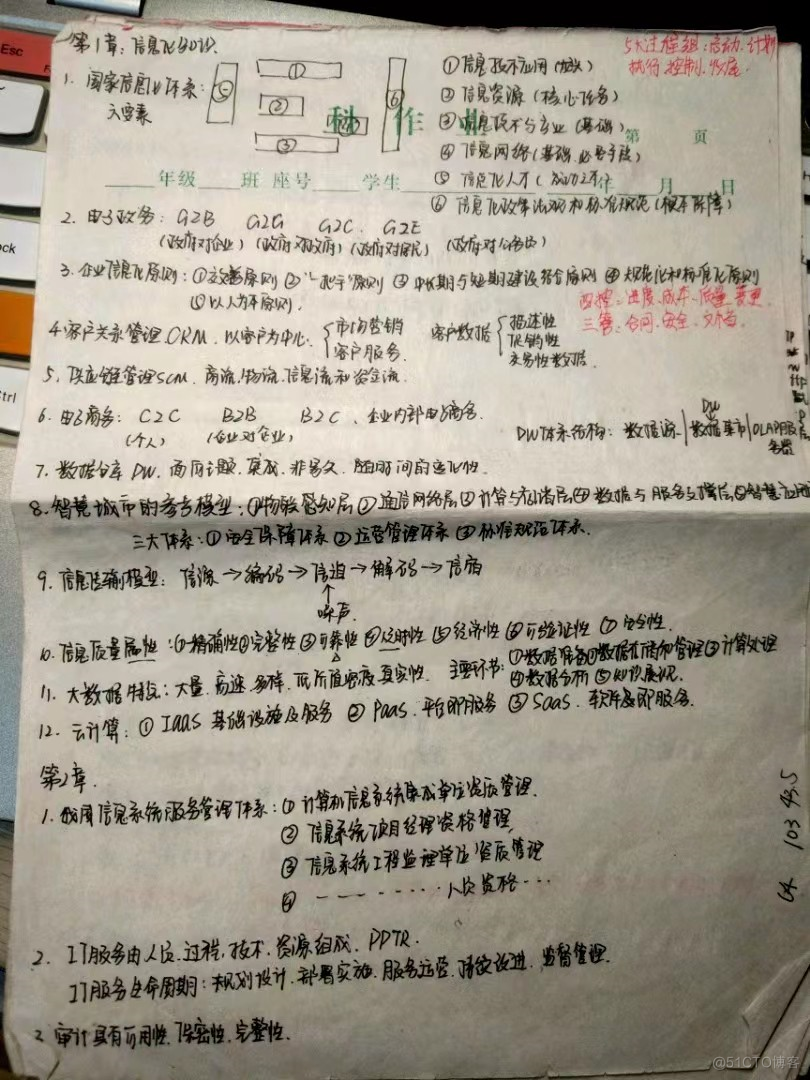 Esc
第1章：信息化知识
5大过程组：启动、计划
执行、控制、收尾
1. 国家信息化体系：
六要素
① ② ③ ④ ⑤ ⑥
① 信息技术应用（龙头）
② 信息资源（核心任务）
③ 信息技术与产业（基础）
④ 信息网络（基础、必要手段）
⑤ 信息化人才（成功之本）
⑥ 信息化政策法规和标准规范（根本保障）
科 作 业
第 页
年级 班 座号 学生 年 月 日
2. 电子政务： G2B G2G G2C. G2E
（政府对企业）（政府对政府）（政府对居民）（政府对公务员）
3. 企业信息化原则：①效益原则 ②"一把手"原则 ③中长期与短期建设结合原则 ④规范化和标准化原则
⑤以人为本原则.
四控：进度、成本、质量、变更
三管：合同、安全、文档
4. 客户关系管理 CRM. 以客户为中心. 市场营销 客户服务. 客户数据 描述性 促销性 交易性数据.
5. 供应链管理SCM. 商流、物流、信息流和资金流.
6. 电子商务： C2C B2B B2C、企业内部电子商务.
（个人）（企业对企业）
DW
DW体系结构：数据源 数据集市 OLAP服务器
7. 数据仓库 DW. 面向主题、集成、非易失、随时间的变化性.
8. 智慧城市的参考模型：①物联感知层②通信网络层③计算与存储层④数据与服务支撑层⑤智慧应用
三大体系：①安全保障体系 ②运营管理体系 ③标准规范体系.
9. 信息传输模型： 信源→编码→信道→解码→信宿
↑
噪声
10. 信息质量属性：①精确性②完整性③可靠性④及时性⑤经济性⑥可验证性⑦安全性.
11. 大数据特征：大量、高速、多样、低价值密度、真实性. 主要环节：①数据准备②数据存储和管理③计算处理
④数据分析⑤知识展现.
12. 云计算：① IAAS 基础设施及服务 ② PaaS. 平台即服务 ③ SaaS. 软件及即服务.
第2章.
1. 我国信息系统服务管理体系：① 计算机信息系统集成单位资质管理.
② 信息系统项目经理资格管理
③ 信息系统工程监理单位资质管理
④ 人员资格…
64 103 43.5
2. IT服务由人员、过程、技术、资源组成. PPTR.
IT服务生命周期：规划设计、部署实施、服务运营、持续改进、监督管理.
3. 审计具有可用性、保密性、完整性.
@51CTO博客